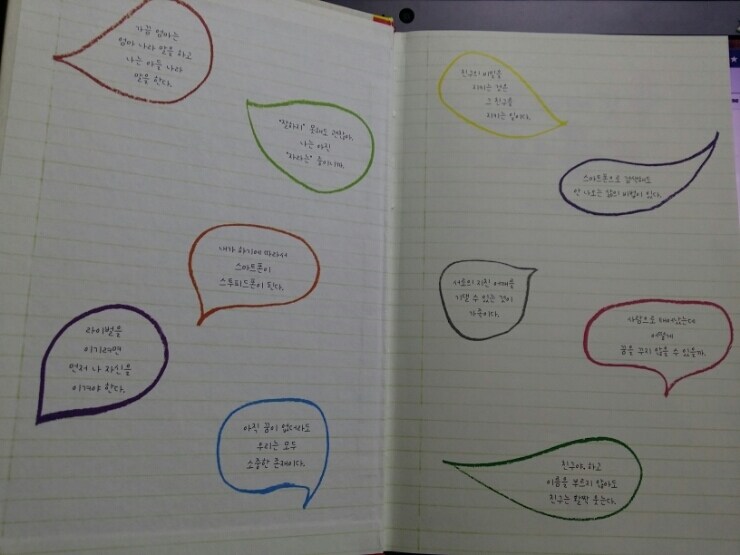 가끔 엄마는
엄마 나라 말을 하고
나는 아들 나라
말을 한다.
"잘하지" 못해도 괜찮아.
나는 아직
"자라는" 중이니까.
내가 하기에 따라서
스마트폰이
스투피드폰이 된다.
라이벌을
이기려면
먼저 나 자신을
이겨야 한다.
아직 꿈이 없더라도
우리는 모두
소중한 존재이다.
친구의 비밀을
지키는 것은
그 친구를
지키는 일이다.
스마트폰으로 검색해도
안 나오는 삶의 비법이 있다.
서로의 지친 어깨를
기댈 수 있는 것이
가족이다.
사람으로 태어났는데
어떻게
꿈을 꾸지 않을 수 있을까.
친구야, 하고
이름을 부르지 않아도
친구는 활짝 웃는다.